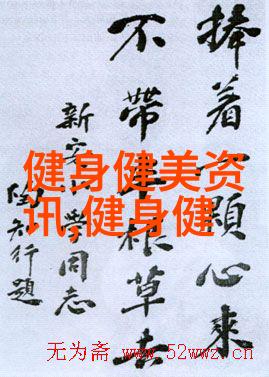 捧着一顆心來
不帶半根草去
新安小學同志
陶知行題
健身健美资
讯,健身健
无为斋 www.52wwz.cn